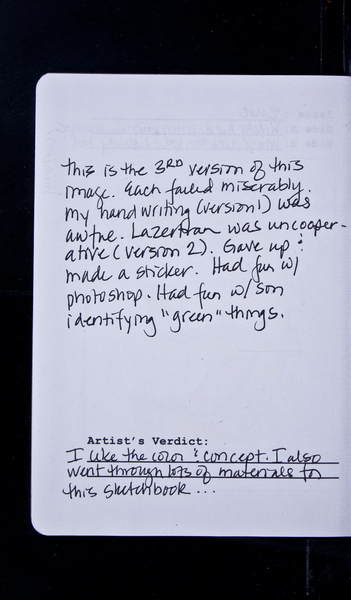 this is the 3RD version of this
image. Each failed miserably.
my handwriting (version 1) was
awful. Lazertran was uncooper-
ative (version 2). Gave up &
made a sticker. Had fun w/
photoshop. Had fun w/ son
identifying "green" things.
Artist's Verdict:
I like the color & concept. I also
went through lots of materials for
this sketchbook...